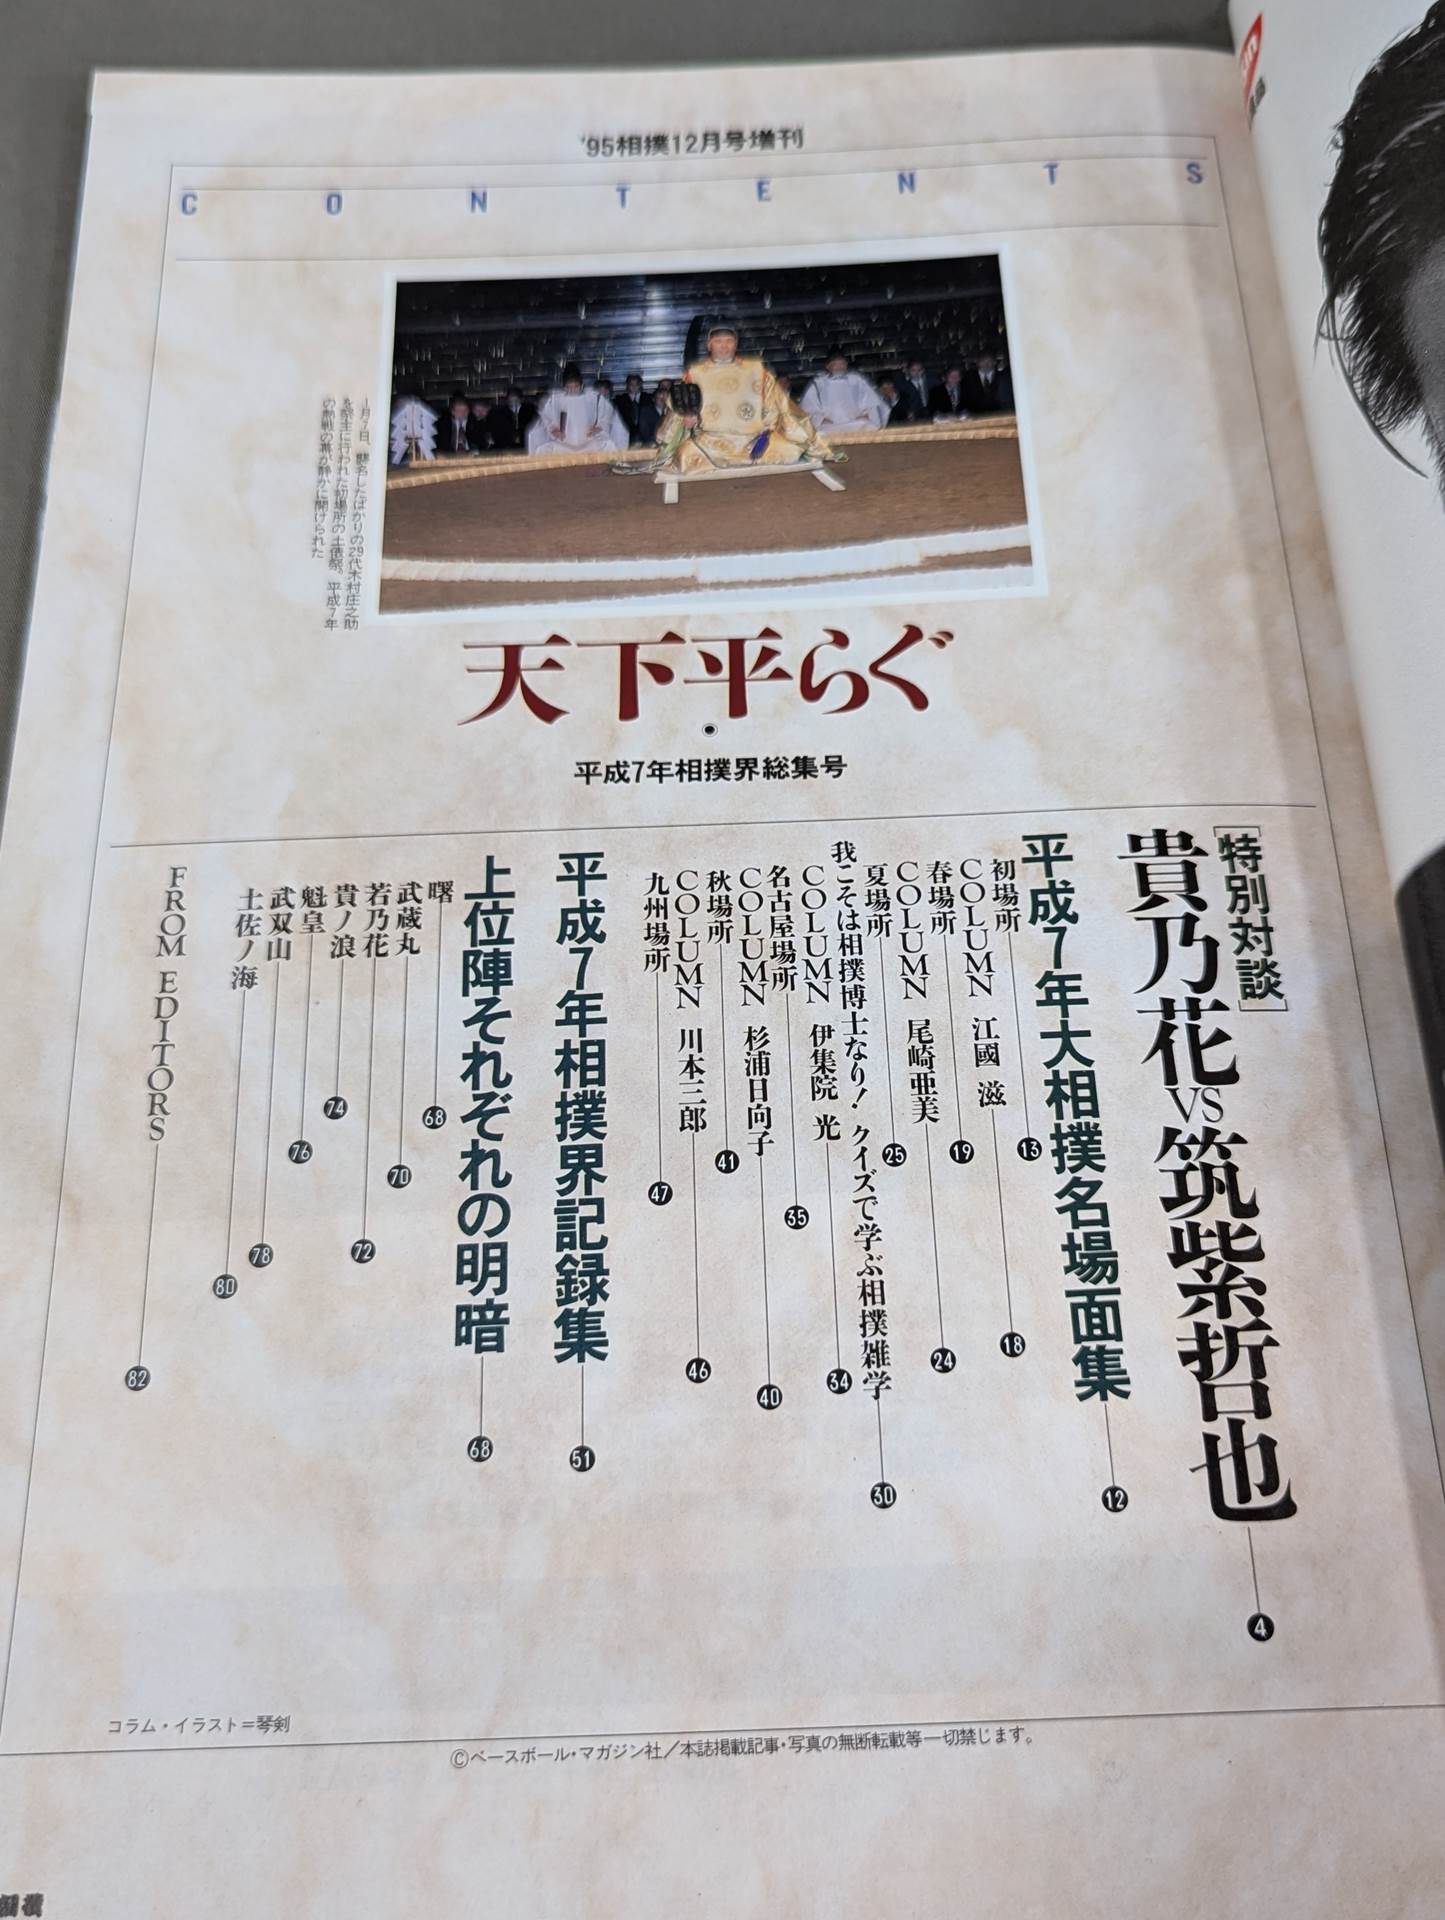 '95相撲12月号増刊
CONTENTS
1月7日、襲名したばかりの29代木村庄之助
を祭主に行われた初場所の土俵祭。平成7年
の熱戦の幕が静かに開けられた
天下平らぐ
平成7年相撲界総集号
[特別対談]
貴乃花VS筑紫哲也 4
平成7年大相撲名場面集 12
初場所 13
COLUMN 江國 滋 18
春場所 19
COLUMN 尾崎亜美 24
夏場所 25
我こそは相撲博士なり! クイズで学ぶ相撲雑学 30
COLUMN 伊集院 光 34
名古屋場所 35
COLUMN 杉浦日向子 40
秋場所 41
COLUMN 川本三郎 46
九州場所 47
平成7年相撲界記録集 51
上位陣それぞれの明暗 68
曙 68
武蔵丸 70
若乃花 72
貴ノ浪 74
魁皇 76
武双山 78
土佐ノ海 80
FROM EDITORS 82
コラム・イラスト=琴剣
©ベースボール・マガジン社/本誌掲載記事・写真の無断転載等一切禁じます。
相撲